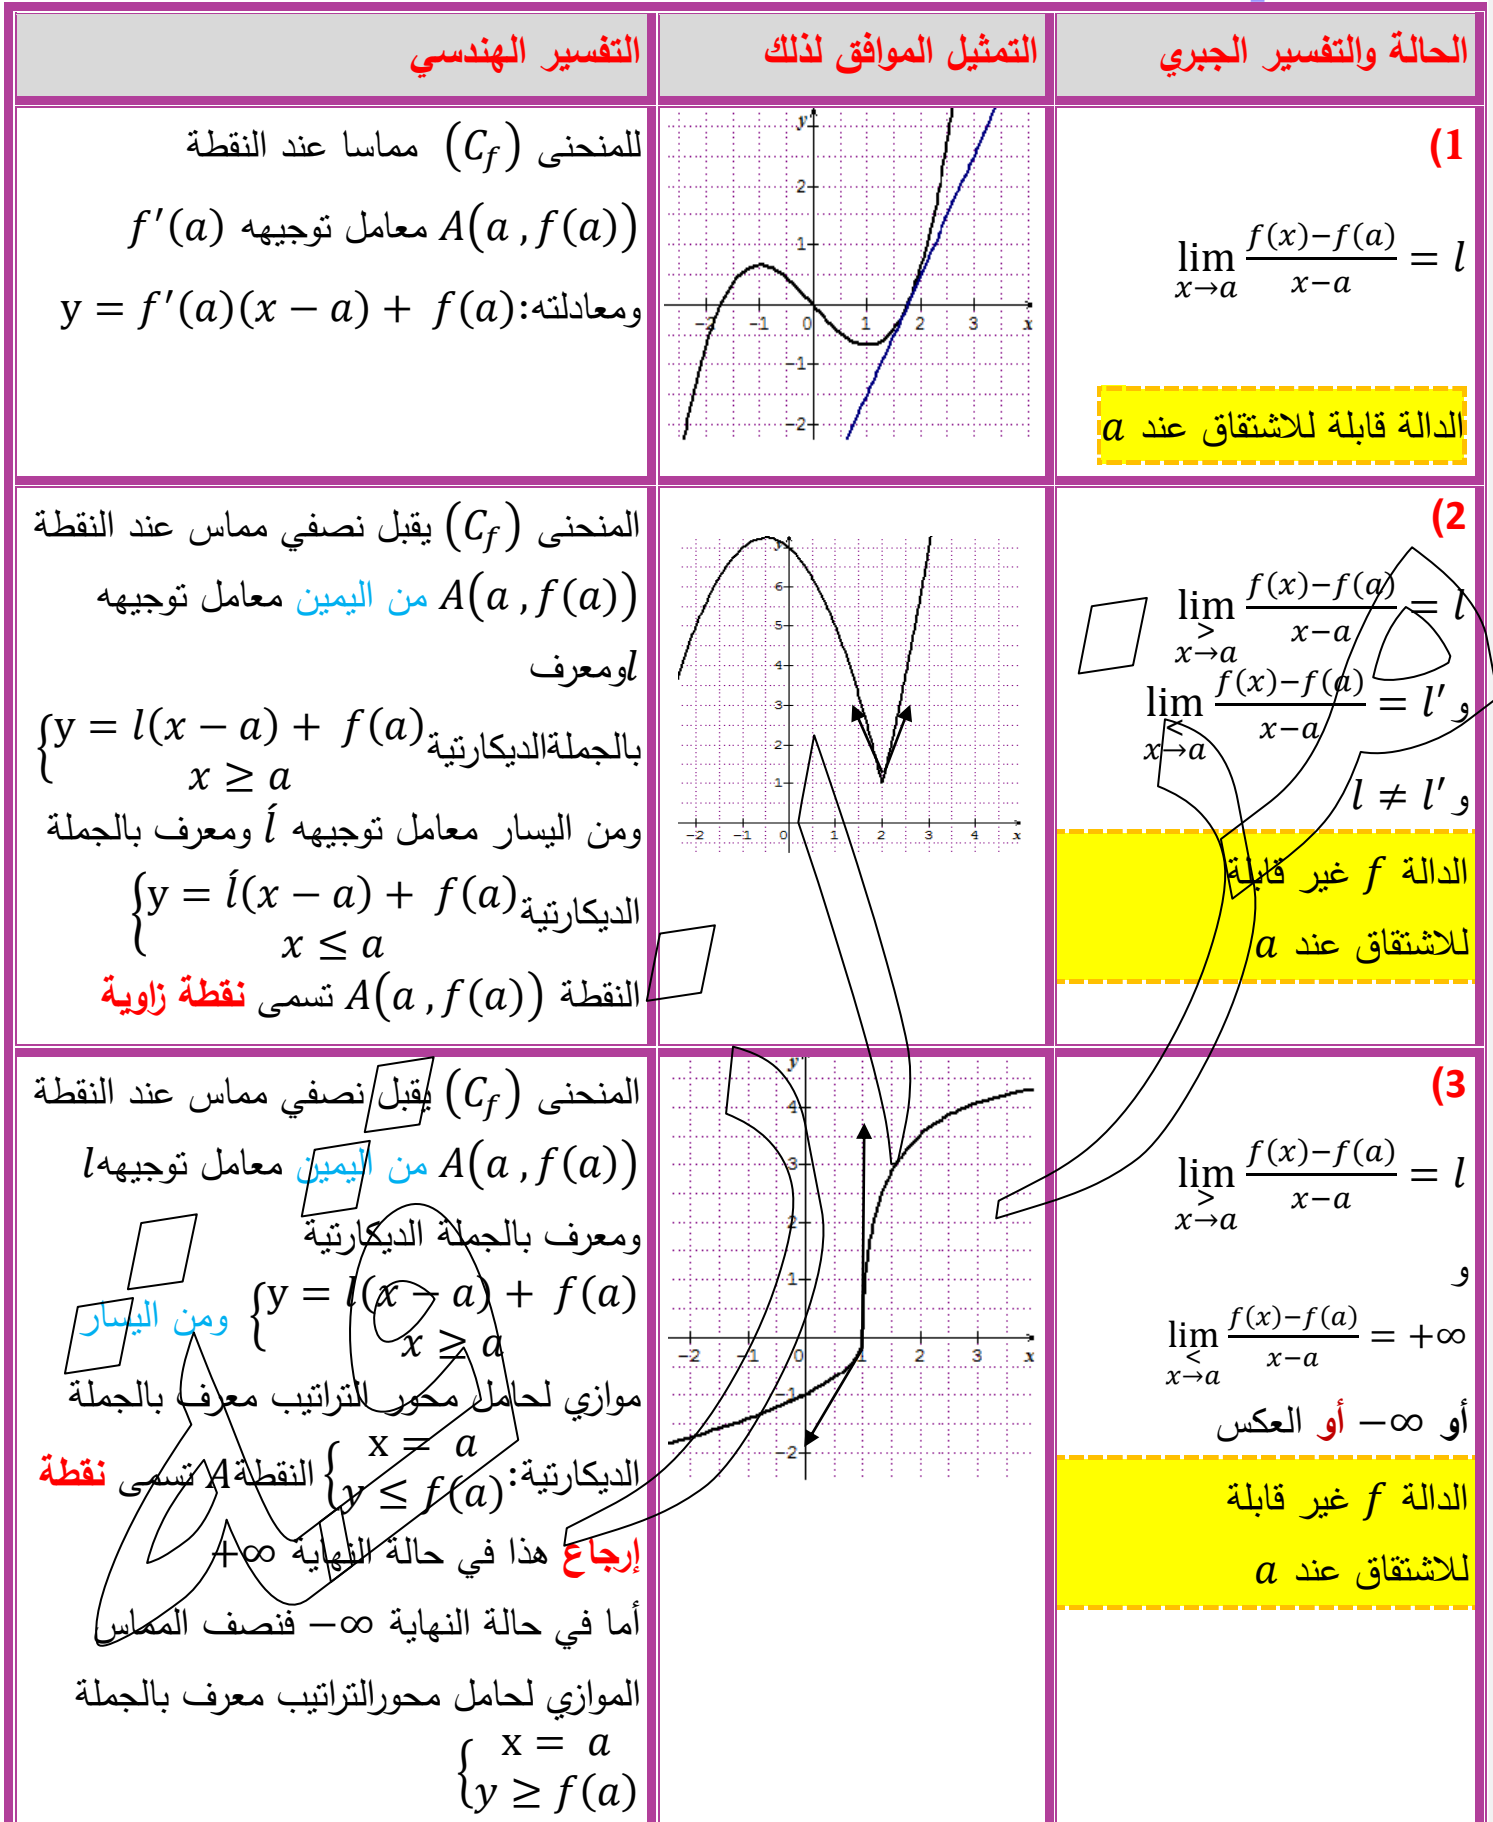 الحالة والتفسير الجبري
التمثيل الموافق لذلك
التفسير الهندسي
1)
lim x→a (f(x)−f(a))/(x−a) = l
الدالة قابلة للاشتقاق عند a
y
2
1
-2 -1 0 1 2 3 x
-1
-2
للمنحنى (C_f) مماسا عند النقطة
A(a , f(a)) معامل توجيهه f′(a)
ومعادلته: y = f′(a)(x − a) + f(a)
2)
lim x→a > (f(x)−f(a))/(x−a) = l
و lim x→a < (f(x)−f(a))/(x−a) = l′
و l ≠ l′
الدالة f غير قابلة
للاشتقاق عند a
y
6
5
4
3
2
1
-2 -1 0 1 2 3 4 x
المنحنى (C_f) يقبل نصفي مماس عند النقطة
A(a , f(a)) من اليمين معامل توجيهه
l ومعرف
بالجملةالديكارتية { y = l(x − a) + f(a)
x ≥ a
ومن اليسار معامل توجيهه ĺ ومعرف بالجملة
الديكارتية { y = ĺ(x − a) + f(a)
x ≤ a
النقطة A(a , f(a)) تسمى نقطة زاوية
3)
lim x→a > (f(x)−f(a))/(x−a) = l
و
lim x→a < (f(x)−f(a))/(x−a) = +∞
أو −∞ أو العكس
الدالة f غير قابلة
للاشتقاق عند a
y
4
3
2
1
-2 -1 0 1 2 3 x
-1
-2
المنحنى (C_f) يقبل نصفي مماس عند النقطة
A(a , f(a)) من اليمين معامل توجيهه l
ومعرف بالجملة الديكارتية
{ y = l(x − a) + f(a) ومن اليسار
x ≥ a
موازي لحامل محور التراتيب معرف بالجملة
الديكارتية: { x = a
y ≤ f(a) النقطة A تسمى نقطة
إرجاع هذا في حالة النهاية +∞
أما في حالة النهاية −∞ فنصف المماس
الموازي لحامل محورالتراتيب معرف بالجملة
{ x = a
y ≥ f(a)